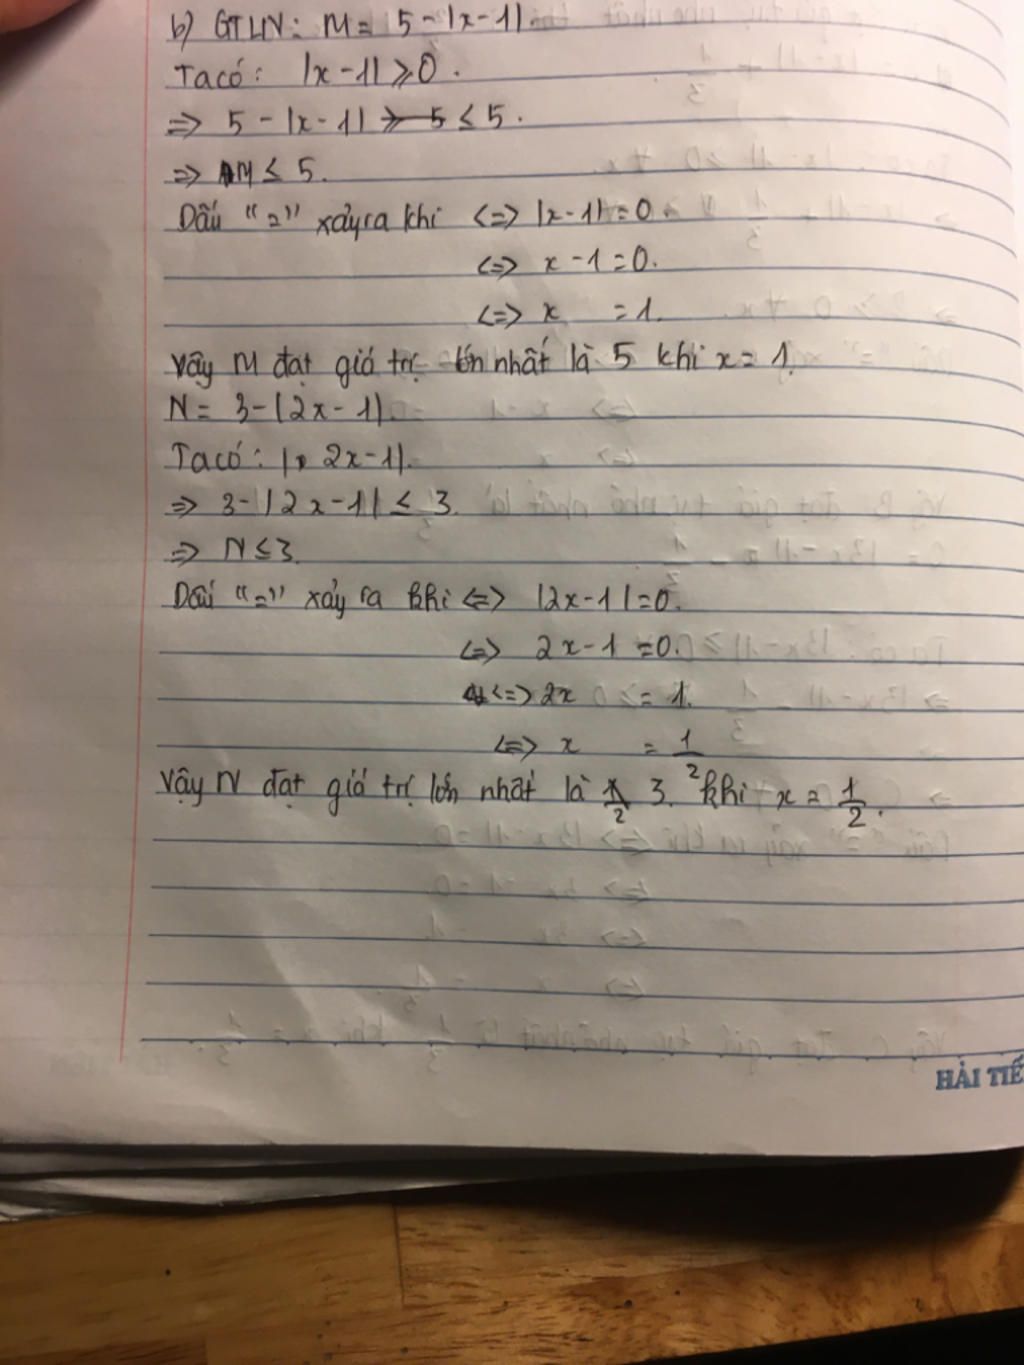 b) GTLN: M = 5 - |x - 1|.
Ta có: |x - 1| ≥ 0.
=> 5 - |x - 1| ≥ 5 ≤ 5.
=> M ≤ 5.
Dấu "=" xảy ra khi <=> |x - 1| = 0.
<=> x - 1 = 0.
<=> x = 1.
Vậy M đạt giá trị lớn nhất là 5 khi x = 1.
N = 3 - |2x - 1|.
Ta có: |2x - 1|.
=> 3 - |2x - 1| ≤ 3.
=> N ≤ 3.
Dấu "=" xảy ra khi <=> |2x - 1| = 0.
<=> 2x - 1 = 0.
<=> 2x = 1.
<=> x = 1/2
Vậy N đạt giá trị lớn nhất là 3. khi x = 1/2.
HẢI TIẾ